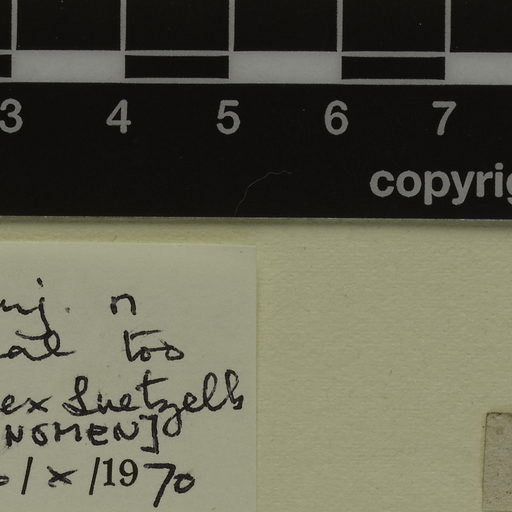 3 4 5 6 7
copyrig
nj. n
al too
ex Luetzelb
NOMEN]
0/x/1970